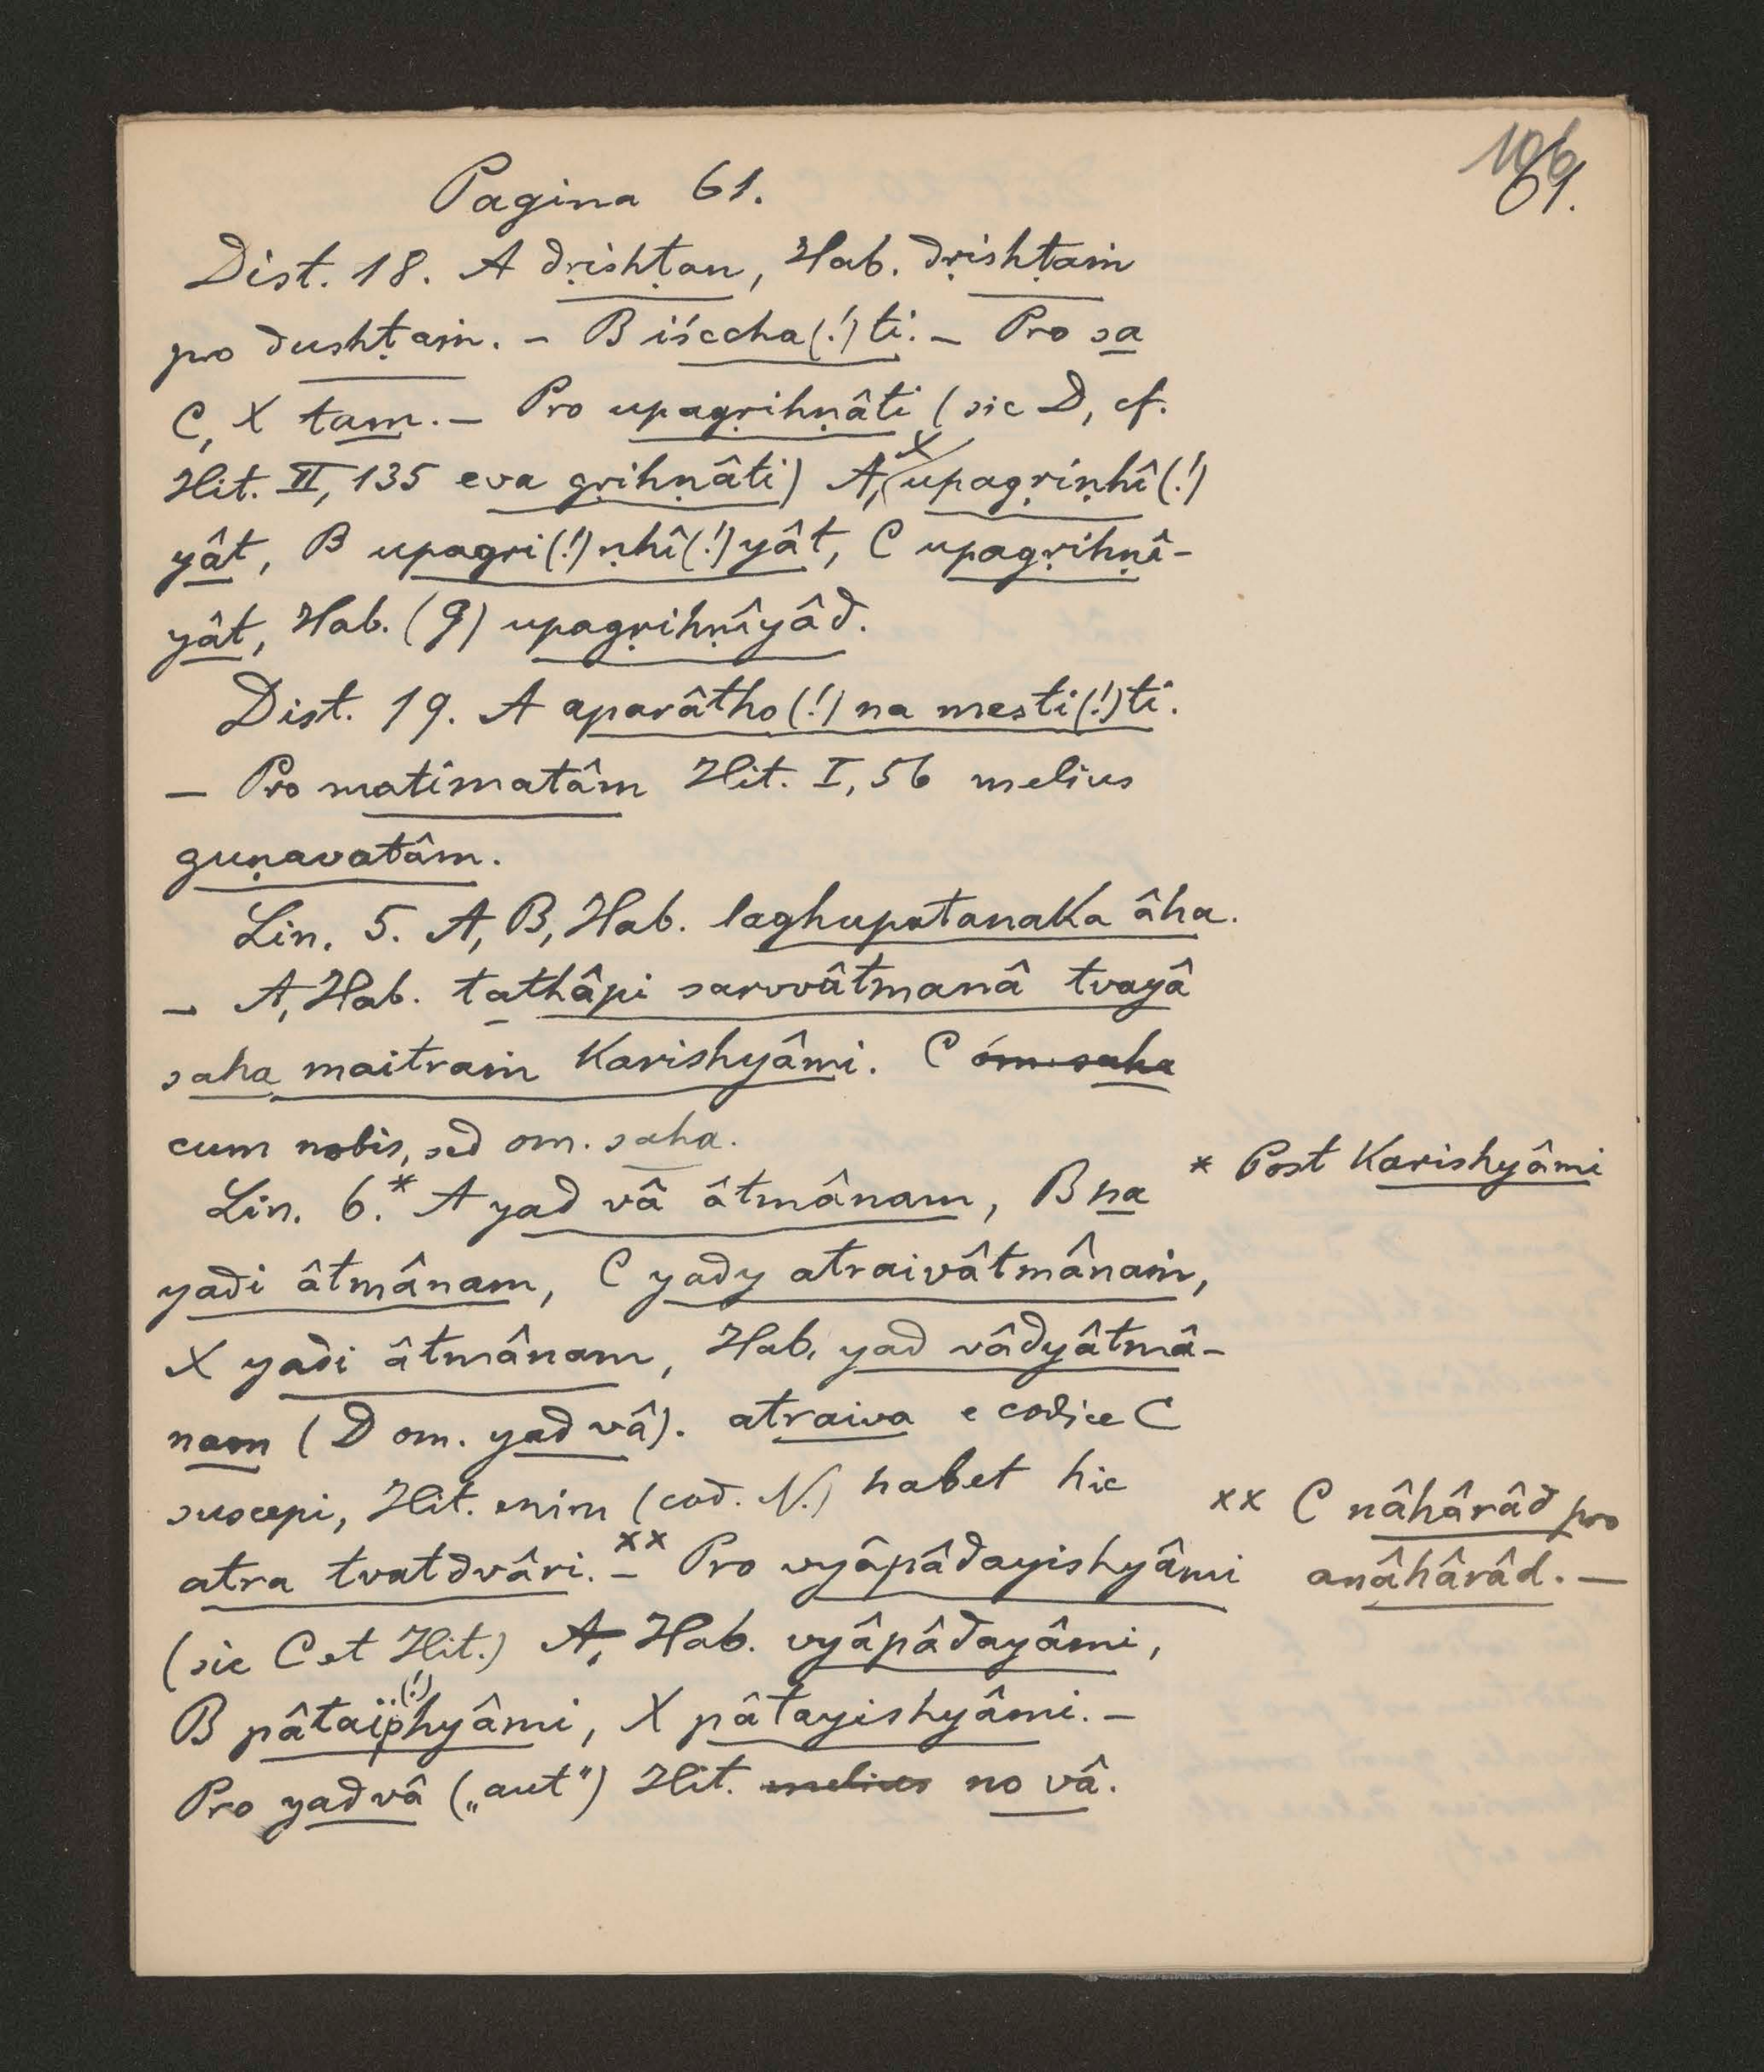 106
61.
Pagina 61.
Dist. 18. A dṛishṭan, Hab. dṛishṭaṁ
pro dushṭaṁ. – B iśccha(!)ti. – Pro sa
C, X tam. – Pro upagṛihṇâti (sic D, cf.
Hit. II, 135 eva gṛihṇâti) A, X upagṛiṇhî(!)
yât, B upagri(!)ṇhî(!)yât, C upagṛihṇî-
yât, Hab. (9) upagṛihṇîyâd.
Dist. 19. A aparâtho(!) na mesti(!)ti.
– Pro matimatâm Hit. I, 56 melius
guṇavatâm.
Lin. 5. A, B, Hab. laghupatanaka âha.
– A, Hab. tathâpi sarvvâtmanâ tvayâ
saha maitraṁ karishyâmi. C om. saha
cum nobis, sed om. saha.
Lin. 6.* A yad vâ âtmânam, B na
* Post karishyâmi
yadi âtmânam, C yady atraivâtmânaṁ,
X yadi âtmânam, Hab. yad vâdyâtmâ-
nam (D om. yad vâ). atraiva e codice C
suscepi, Hit. enim (cod. N.) habet hic
atra tvatdvâri. xx – Pro vyâpâdayishyâmi
xx C nâhârâd pro
anâhârâd. –
(sic C et Hit.) A, Hab. vyâpâdayâmi,
B pâtaïp(!)hyâmi, X pâtayishyâmi. –
Pro yad vâ („aut") Hit. melius no vâ.